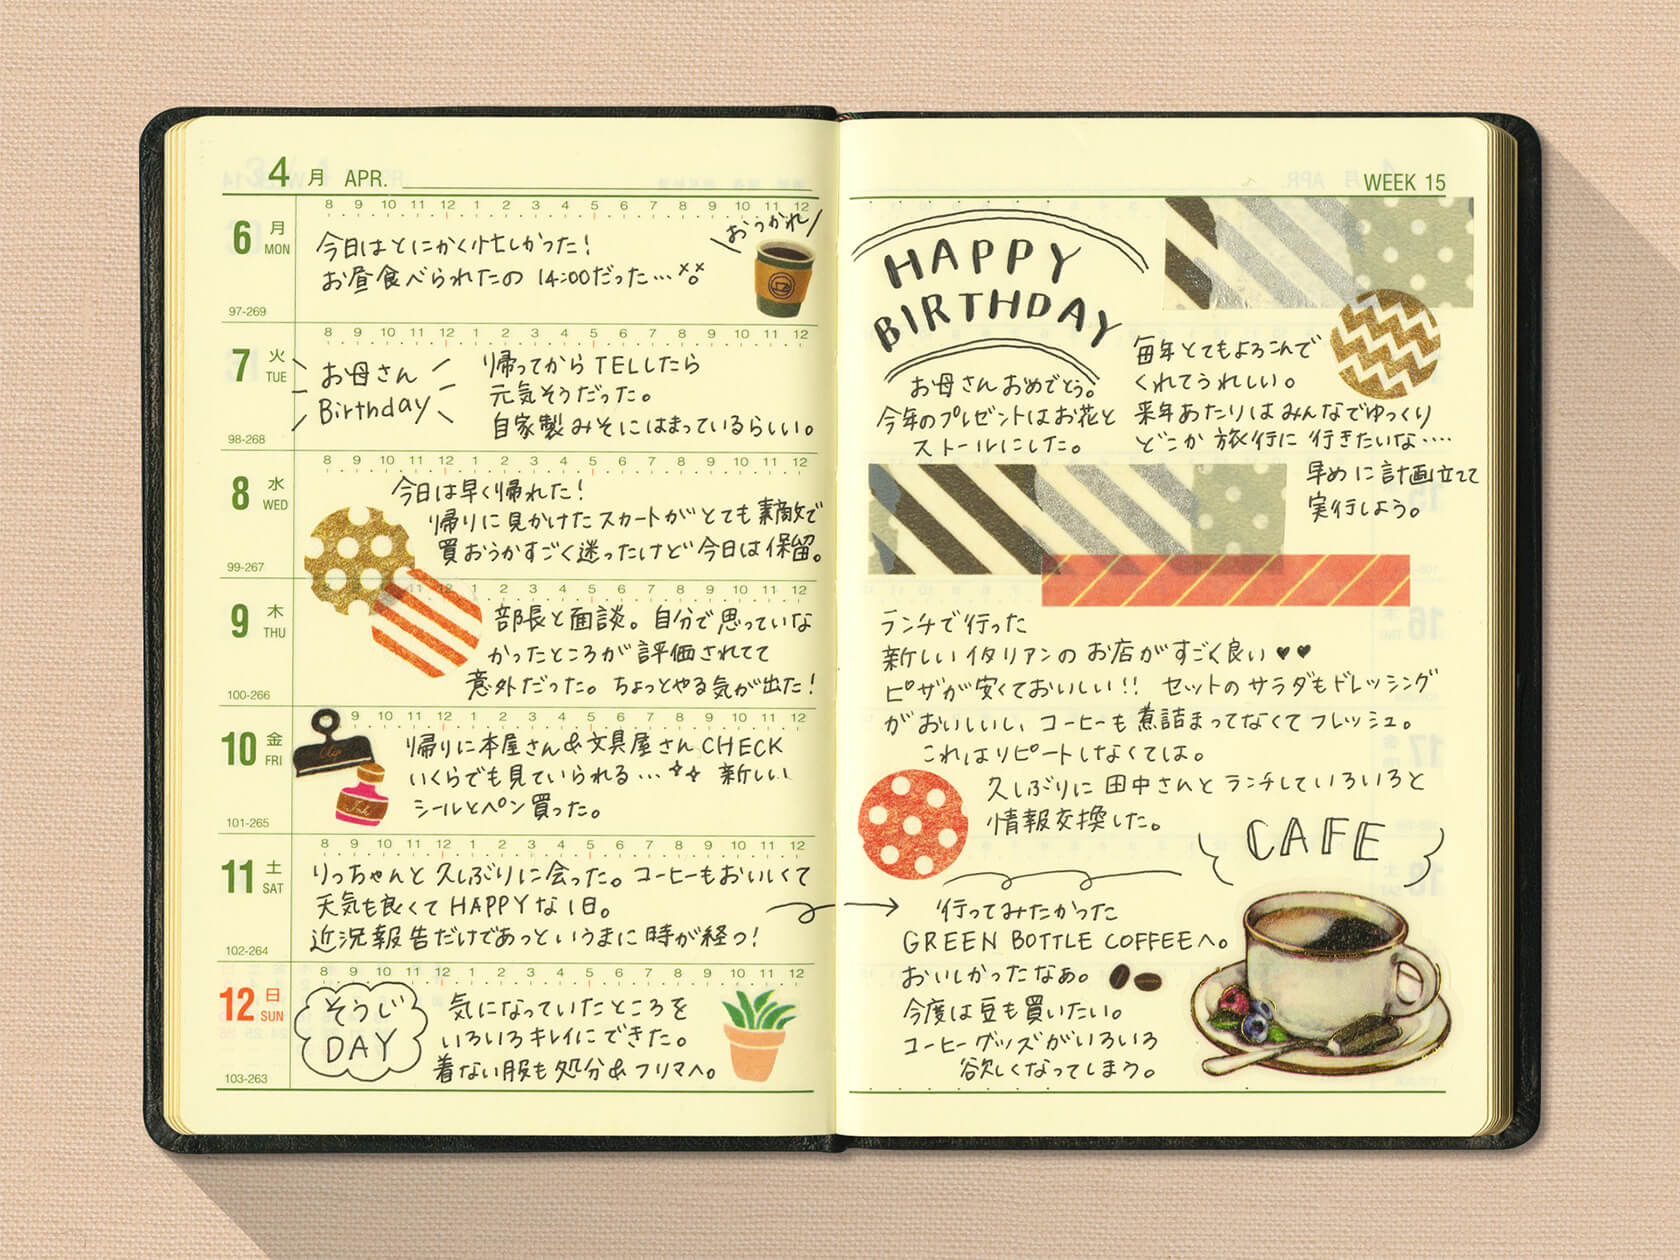 4 月 APR.
8 9 10 11 12 1 2 3 4 5 6 7 8 9 10 11 12
6 月 MON
97-269
今日はとにかく忙しかった！
お昼食べられたの 14:00だった…
おつかれ
8 9 10 11 12 1 2 3 4 5 6 7 8 9 10 11 12
7 火 TUE
98-268
お母さん
Birthday
帰ってから TELしたら
元気そうだった。
自家製みそにはまっているらしい。
8 9 10 11 12 1 2 3 4 5 6 7 8 9 10 11 12
8 水 WED
99-267
今日は早く帰れた！
帰りに見かけたスカートがとても素敵で
買おうかすごく迷ったけど今日は保留。
11 12 1 2 3 4 5 6 7 8 9 10 11 12
9 木 THU
100-266
部長と面談。自分で思っていな
かったところが評価されてて
意外だった。ちょっとやる気が出た！
9 10 11 12 1 2 3 4 5 6 7 8 9 10 11 12
10 金 FRI
101-265
Clip
Ink
帰りに本屋さん&文具屋さんCHECK
いくらでも見ていられる… 新しい
シールとペン買った。
8 9 10 11 12 1 2 3 4 5 6 7 8 9 10 11 12
11 土 SAT
102-264
りっちゃんと久しぶりに会った。コーヒーもおいしくて
天気も良くてHAPPYな1日。
近況報告だけであっというまに時が経つ！
8 9 10 11 12 1 2 3 4 5 6 7 8 9 10 11 12
12 日 SUN
103-263
そうじ
DAY
気になっていたところを
いろいろキレイにできた。
着ない服も処分&フリマへ。
WEEK 15
HAPPY
BIRTHDAY
お母さんおめでとう。
今年のプレゼントはお花と
ストールにした。
毎年とてもよろこんで
くれてうれしい。
来年あたりはみんなでゆっくり
どこか旅行に行きたいな‥‥
早めに計画立てて
実行しよう。
ランチで行った
新しいイタリアンのお店がすごく良い♥♥
ピザが安くておいしい!! セットのサラダもドレッシング
がおいしいし、コーヒーも煮詰まってなくてフレッシュ。
これはリピートしなくては。
久しぶりに田中さんとランチしていろいろと
情報交換した。
CAFE
行ってみたかった
GREEN BOTTLE COFFEEへ。
おいしかったなぁ。
今度は豆も買いたい。
コーヒーグッズがいろいろ
欲しくなってしまう。